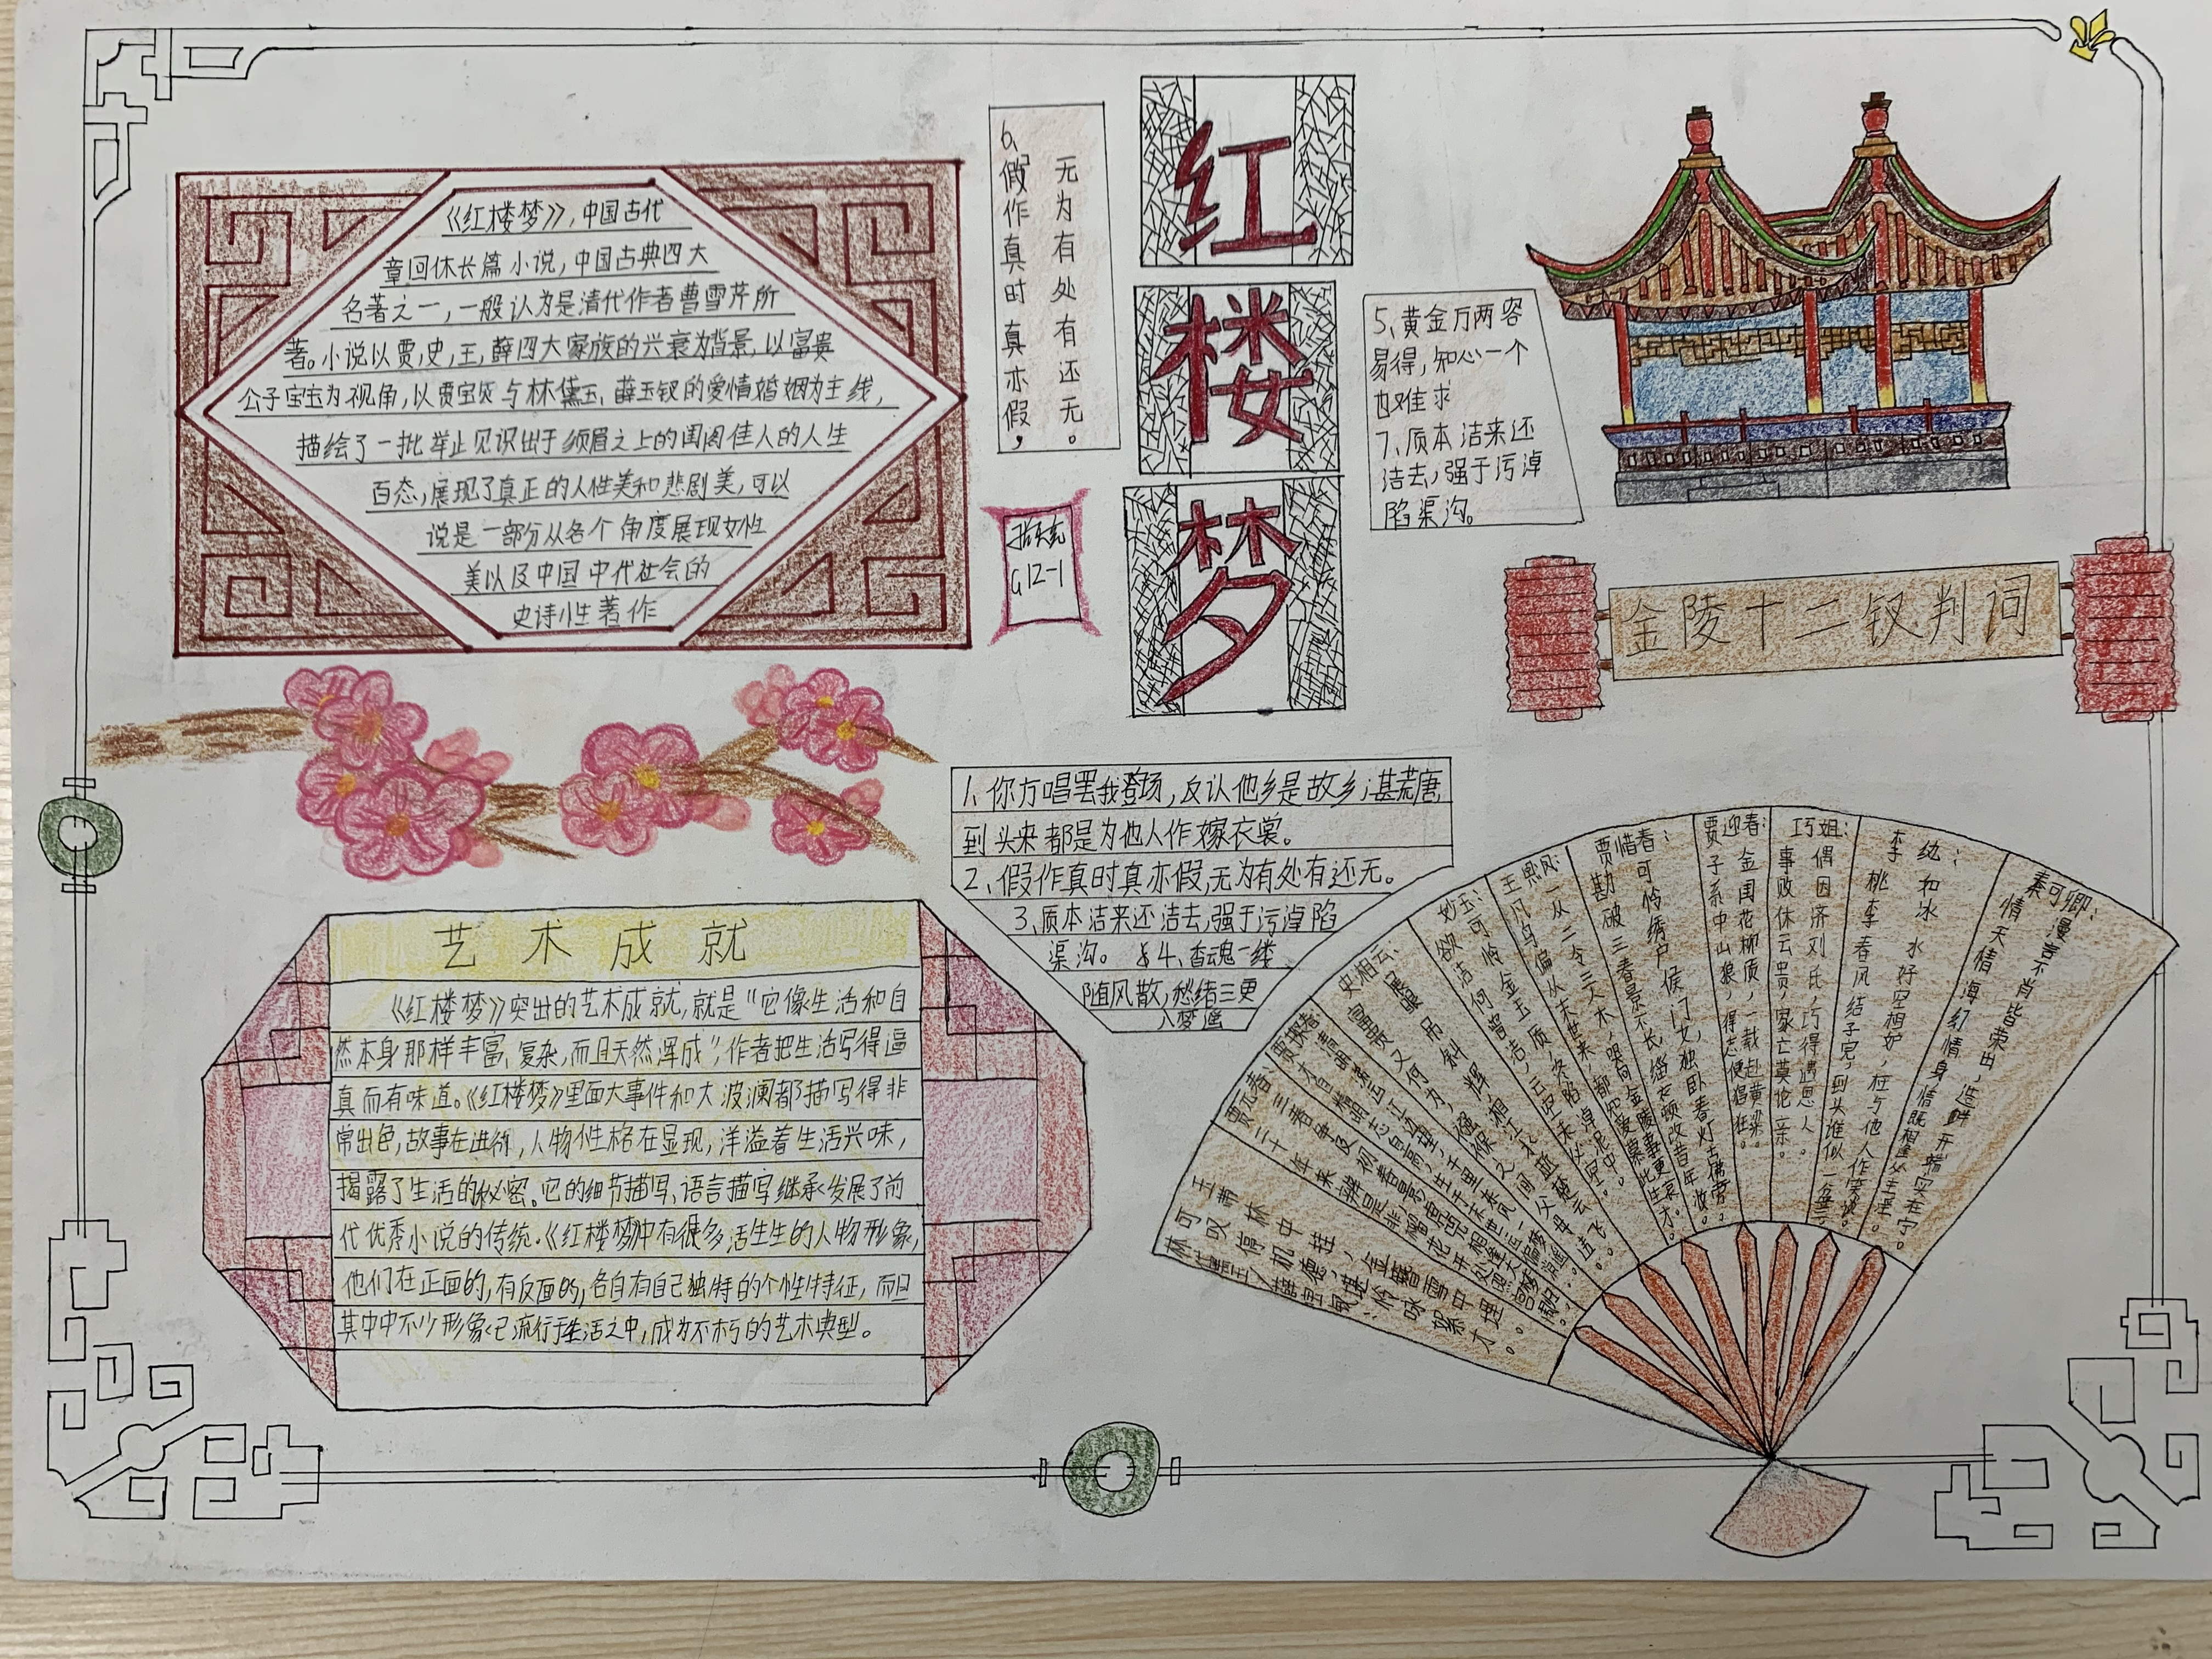 《红楼梦》，中国古代
章回体长篇小说，中国古典四大
名著之一，一般认为是清代作者曹雪芹所
著。小说以贾，史，王，薛四大家族的兴衰为背景，以富贵
公子宝宝为视角，以贾宝玉与林黛玉、薛玉钗的爱情婚姻为主线，
描绘了一批举止见识出于须眉之上的闺阁佳人的人生
百态，展现了真正的人性美和悲剧美，可以
说是一部分从各个角度展现女性
美以及中国中代社会的
史诗性著作
6、假作真时真亦假，
无为有处有还无。
G12-1
红
楼
梦
5、黄金万两容
易得，知心一个
也难求
7、质本洁来还
洁去，强于污淖
陷渠沟。
金陵十二钗判词
1、你方唱罢我登场，反认他乡是故乡；甚荒唐
到头来都是为他人作嫁衣裳。
2、假作真时真亦假，无为有处有还无。
3、质本洁来还洁去，强于污淖陷
渠沟。 4、香魂一缕
随风散，愁绪三更
入梦遥
艺术成就
《红楼梦》突出的艺术成就，就是“它像生活和自
然本身那样丰富、复杂，而且天然浑成”，作者把生活写得逼
真而有味道。《红楼梦》里面大事件和大波澜都描写得非
常出色，故事在进行，人物性格在显现，洋溢着生活兴味，
揭露了生活的秘密。它的细节描写、语言描写继承发展了前
代优秀小说的传统。《红楼梦》中有很多活生生的人物形象，
他们在正面的，有反面的，各自有自己独特的个性特征，而且
其中中不少形象已流行于生活之中，成为不朽的艺术典型。
秦可卿：
情天情海幻情身，情既相逢必主淫。
漫言不肖皆荣出，造衅开端实在宁。
李纨：
桃李春风结子完，到头谁似一盆
和冰水好空相妒，枉与他人作笑谈。
巧姐：
事败休云贵，家亡莫论亲。
偶因济刘氏，巧得遇恩人。
贾迎春：
子系中山狼，得志便猖狂。
金国花柳质，一载赴黄粱。
贾惜春：
勘破三春景不长，缁衣顿改昔年妆。
可怜绣户侯门女，独卧春灯古佛旁。
王熙凤：
凡鸟偏从末世来，都知爱慕此生才。
一从二令三人木，哭向金陵事更哀。
妙玉：
欲洁何曾洁，云空未必空。
可怜金玉质，终陷淖泥中。
史湘云：
富贵又何为，襁保之间父母违。
展眼吊斜辉，湘江水逝楚云飞。
贾探春：
才自精明志自高，生于末世运偏消。
清明涕泣江边望，千里东风一梦遥。
贾元春：
二十年来辨是非，榴花开处照宫闱。
三春争及初春景，虎兕相逢大梦归。
林黛玉、薛宝钗：
可叹停机德，堪怜咏絮才。
玉带林中挂，金簪雪中埋。